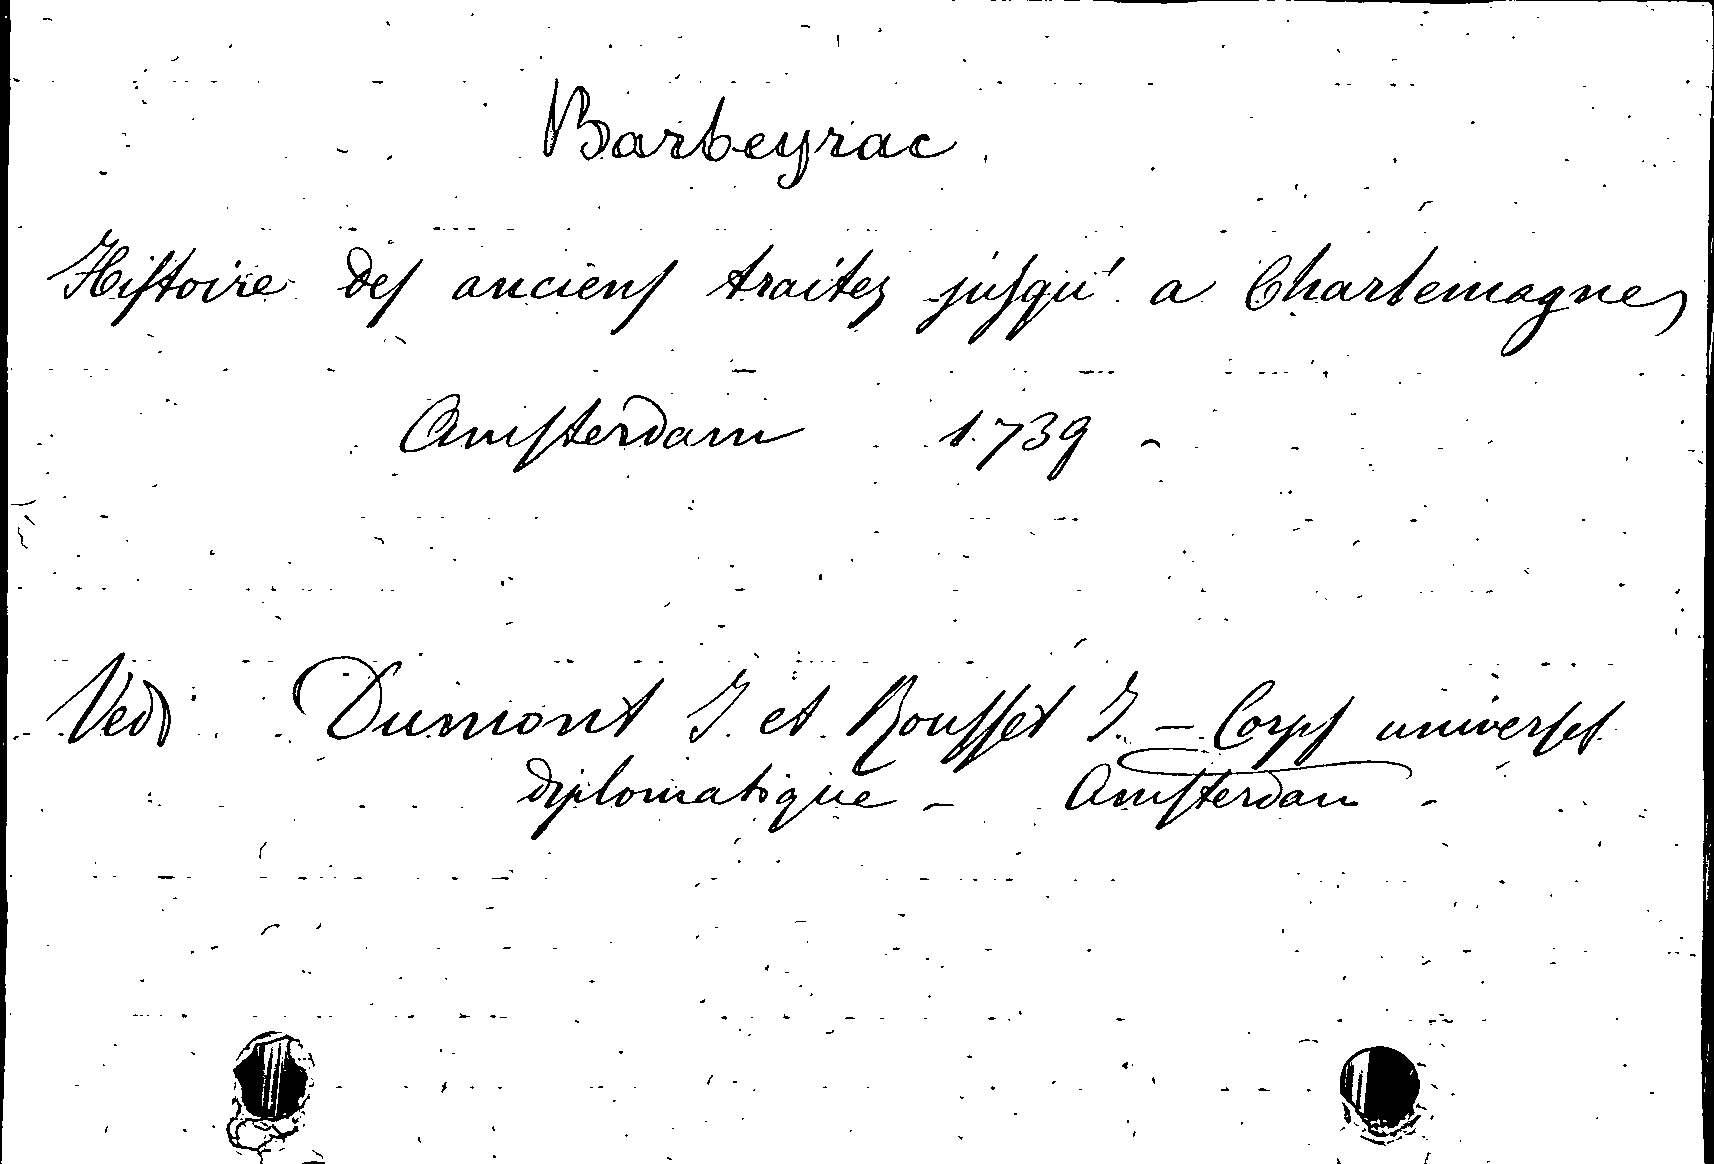 Barbeyrac
Histoire des anciens traites jusqu' a Charlemagne,
Amsterdam 1739 -
Vedi Dumont J. et Rousset J. - Corps universel
diplomatique - Amsterdam -